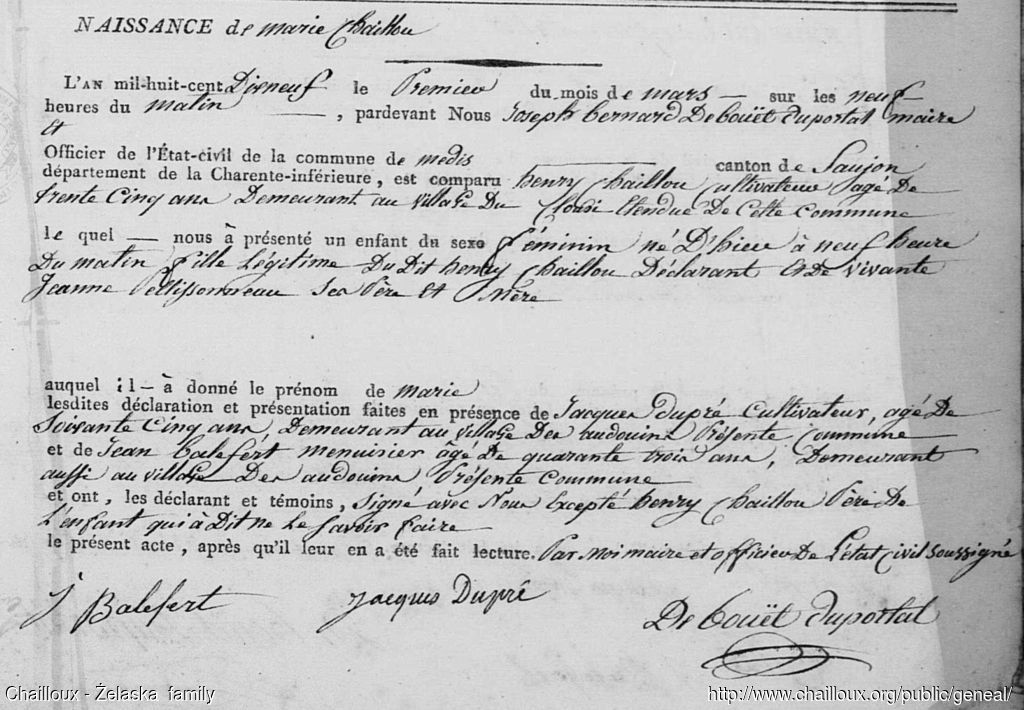 NAISSANCE de marie Chaillou
L'AN mil-huit-cent Dixneuf le Premier du mois de mars — sur les neuf
heures du matin — , pardevant Nous Joseph bernard De bouët Duportal maire
et
Officier de l'État-civil de la commune de medis canton de Saujon
département de la Charente-inférieure, est comparu henry Chaillou Cultivateur agé De
trente Cinq ans Demeurant au village Du Etendue De Cette Commune
le quel — nous à présenté un enfant du sexe féminin né D'hier à neuf heure
Du matin fille Légitime Du Dit henry Chaillou Déclarant Et De vivante
Jeanne Ses Père Et Mère
auquel il — à donné le prénom de marie
lesdites déclaration et présentation faites en présence de Jacques Dupré Cultivateur, agé De
Soixante Cinq ans, Demeurant au village Des audouins Présente Commune
et de Jean balefért menuisier âgé De quarante trois ans, Demeurant
aussi au village Des audouins Présente Commune
et ont, les déclarant et témoins, Signé avec Nous Excepté henry Chaillou Père De
L'enfant qui à Dit ne Le Savoir faire
le présent acte, après qu'il leur en a été fait lecture. Par Moi maire et officier De L'état Civil soussigné
J Balefert Jacques Dupré De bouët Duportal
Chailloux - Żelaska family http://www.chailloux.org/public/geneal/